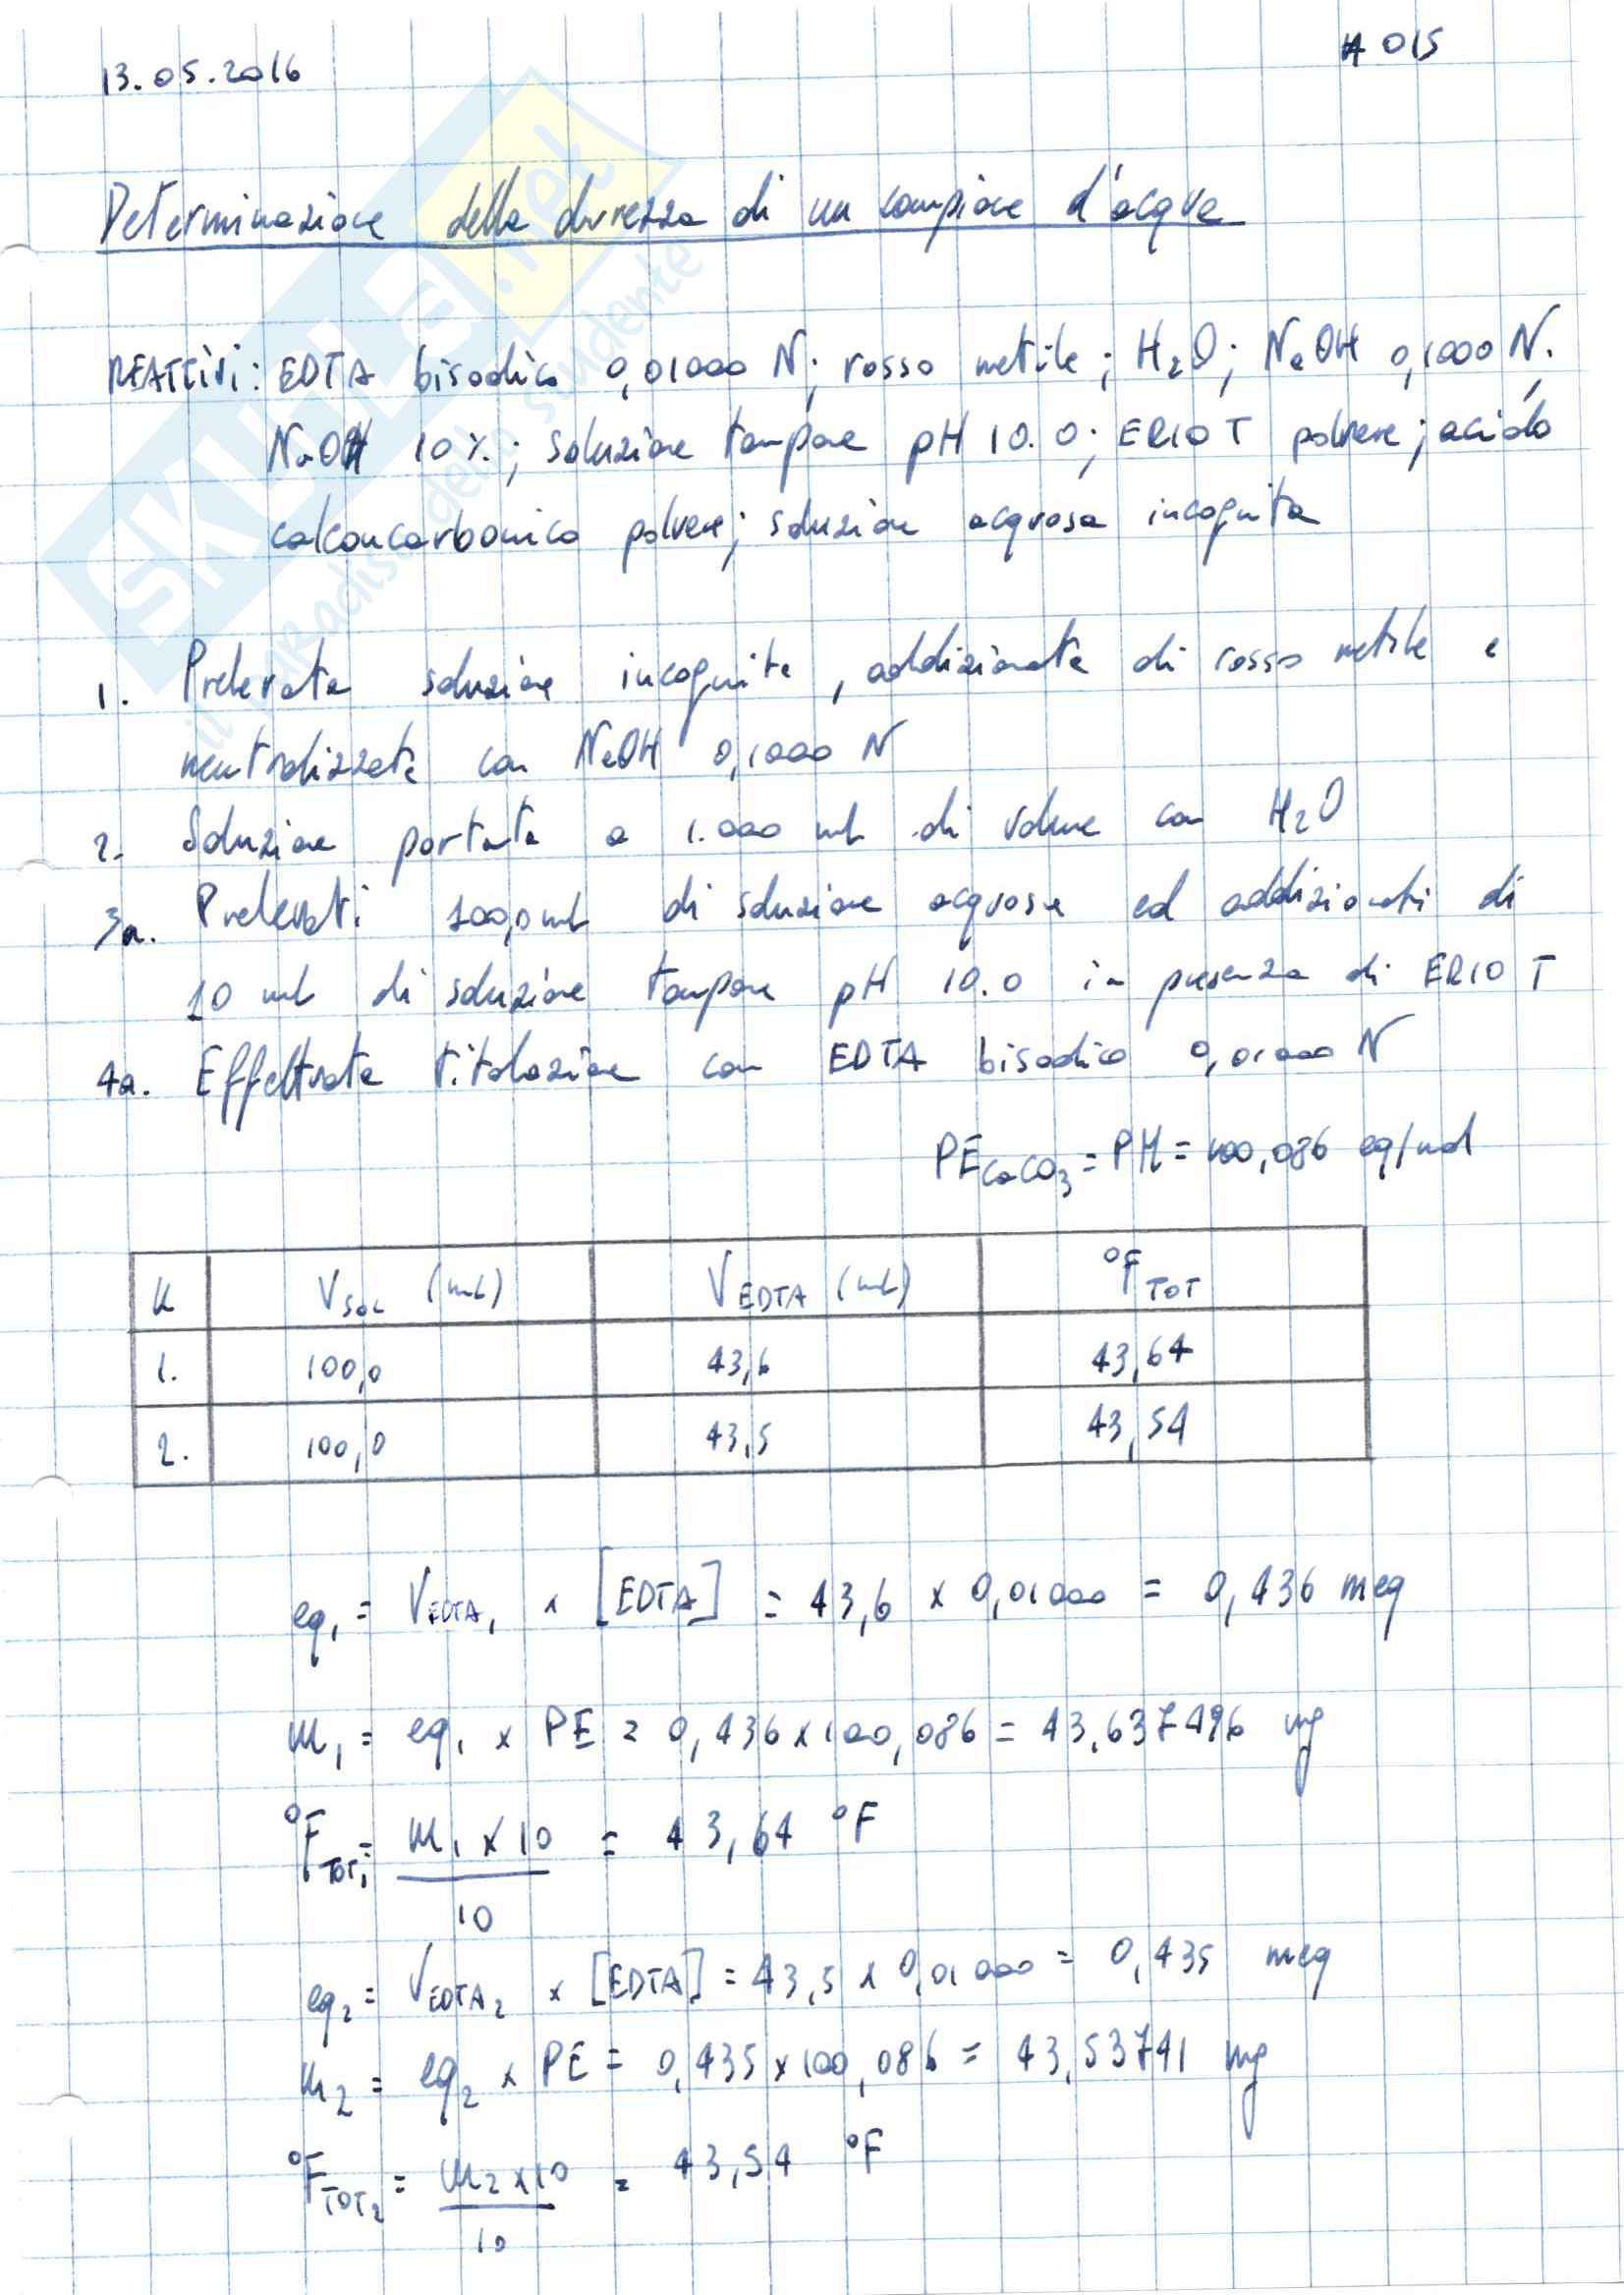 13.05.2016
# 015
Determinazione della durezza di un campione d'acqua
REATTIVI: EDTA bisodico 0,01000 N; rosso metile; H₂O; NaOH 0,1000 N;
NaOH 10%; soluzione tampone pH 10.0; ERIO T polvere; acido
calconcarbonico polvere; soluzione acquosa incognita
1. Prelevata soluzione incognita, addizionata di rosso metile e
neutralizzata con NaOH 0,1000 N
2. Soluzione portata a 1.000 mL di volume con H₂O
3a. Prelevati 100,0 mL di soluzione acquosa ed addizionati di
10 mL di soluzione tampone pH 10.0 in presenza di ERIO T
4a. Effettuata titolazione con EDTA bisodico 0,01000 N
PE CaCO₃ = PM = 100,086 eq/mol
n V SOL (mL) V EDTA (mL) °F TOT
1. 100,0 43,6 43,64
2. 100,0 43,5 43,54
eq₁ = V EDTA₁ x [EDTA] = 43,6 x 0,01000 = 0,436 meq
m₁ = eq₁ x PE = 0,436 x 100,086 = 43,637496 mg
°F TOT₁ = m₁ x 10 = 43,64 °F
10
eq₂ = V EDTA₂ x [EDTA] = 43,5 x 0,01000 = 0,435 meq
m₂ = eq₂ x PE = 0,435 x 100,086 = 43,53741 mg
°F TOT₂ = m₂ x 10 = 43,54 °F
10
SKUOLA.net
il paradiso dello studente